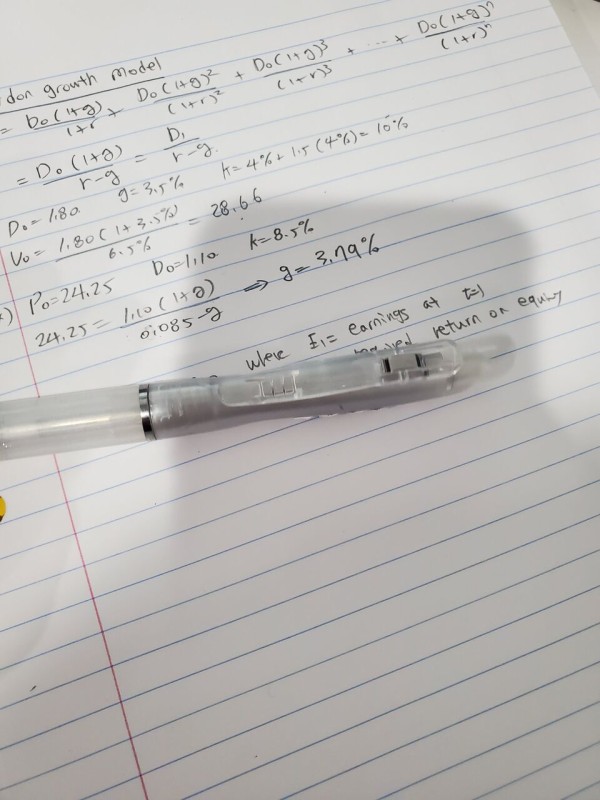 don growth model
= D₀(1+g)/1+r + D₀(1+g)²/(1+r)² + D₀(1+g)³/(1+r)³ + ... + D₀(1+g)ⁿ/(1+r)ⁿ
= D₀(1+g)/r-g = D₁/r-g.
D₀=1.80 g=3.5% k=4%+1.5(4%)=10%
V₀= 1.80(1+3.5%)/6.5% = 28.66
) P₀=24.25 D₀=1.10 k=8.5%
24.25= 1.10(1+g)/0.085-g ⇒ g=3.79%
where E₁= earnings at t=1
return on equity